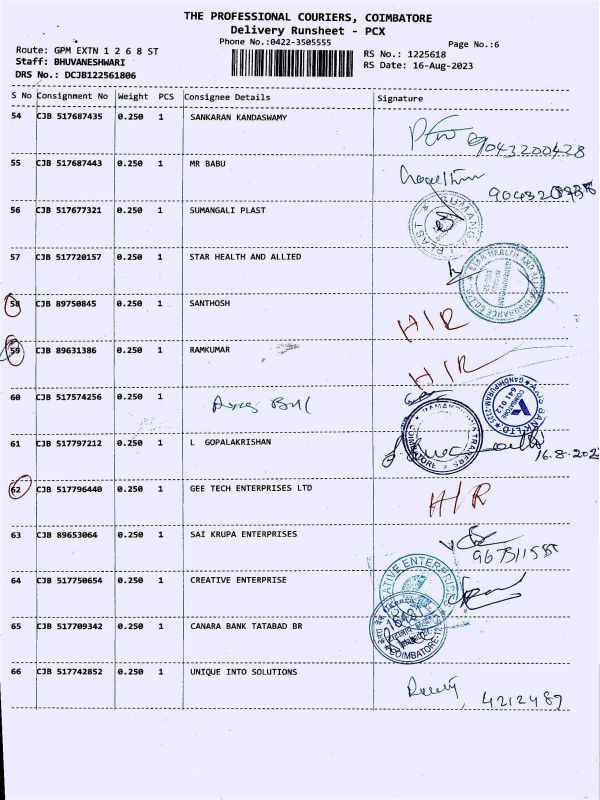 THE PROFESSIONAL COURIERS, COIMBATORE
Delivery Runsheet - PCX
Phone No.:0422-3505555
Page No.:6
Route: GPM EXTN 1 2 6 8 ST
Staff: BHUVANESHWARI
DRS No.: DCJB122561806
RS No.: 1225618
RS Date: 16-Aug-2023
S No Consignment No Weight PCS Consignee Details Signature
54 CJB 517687435 0.250 1 SANKARAN KANDASWAMY
9043200428
55 CJB 517687443 0.250 1 MR BABU
56 CJB 517677321 0.250 1 SUMANGALI PLAST
57 CJB 517720157 0.250 1 STAR HEALTH AND ALLIED
58 CJB 89750845 0.250 1 SANTHOSH
H/R
59 CJB 89631386 0.250 1 RAMKUMAR
H/R
60 CJB 517574256 0.250 1
61 CJB 517797212 0.250 1 L GOPALAKRISHAN
COIMBATORE
62 CJB 517796440 0.250 1 GEE TECH ENTERPRISES LTD
H/R
63 CJB 89653064 0.250 1 SAI KRUPA ENTERPRISES
64 CJB 517750654 0.250 1 CREATIVE ENTERPRISE
65 CJB 517709342 0.250 1 CANARA BANK TATABAD BR
COIMBATORE-12
66 CJB 517742852 0.250 1 UNIQUE INTO SOLUTIONS
4212487